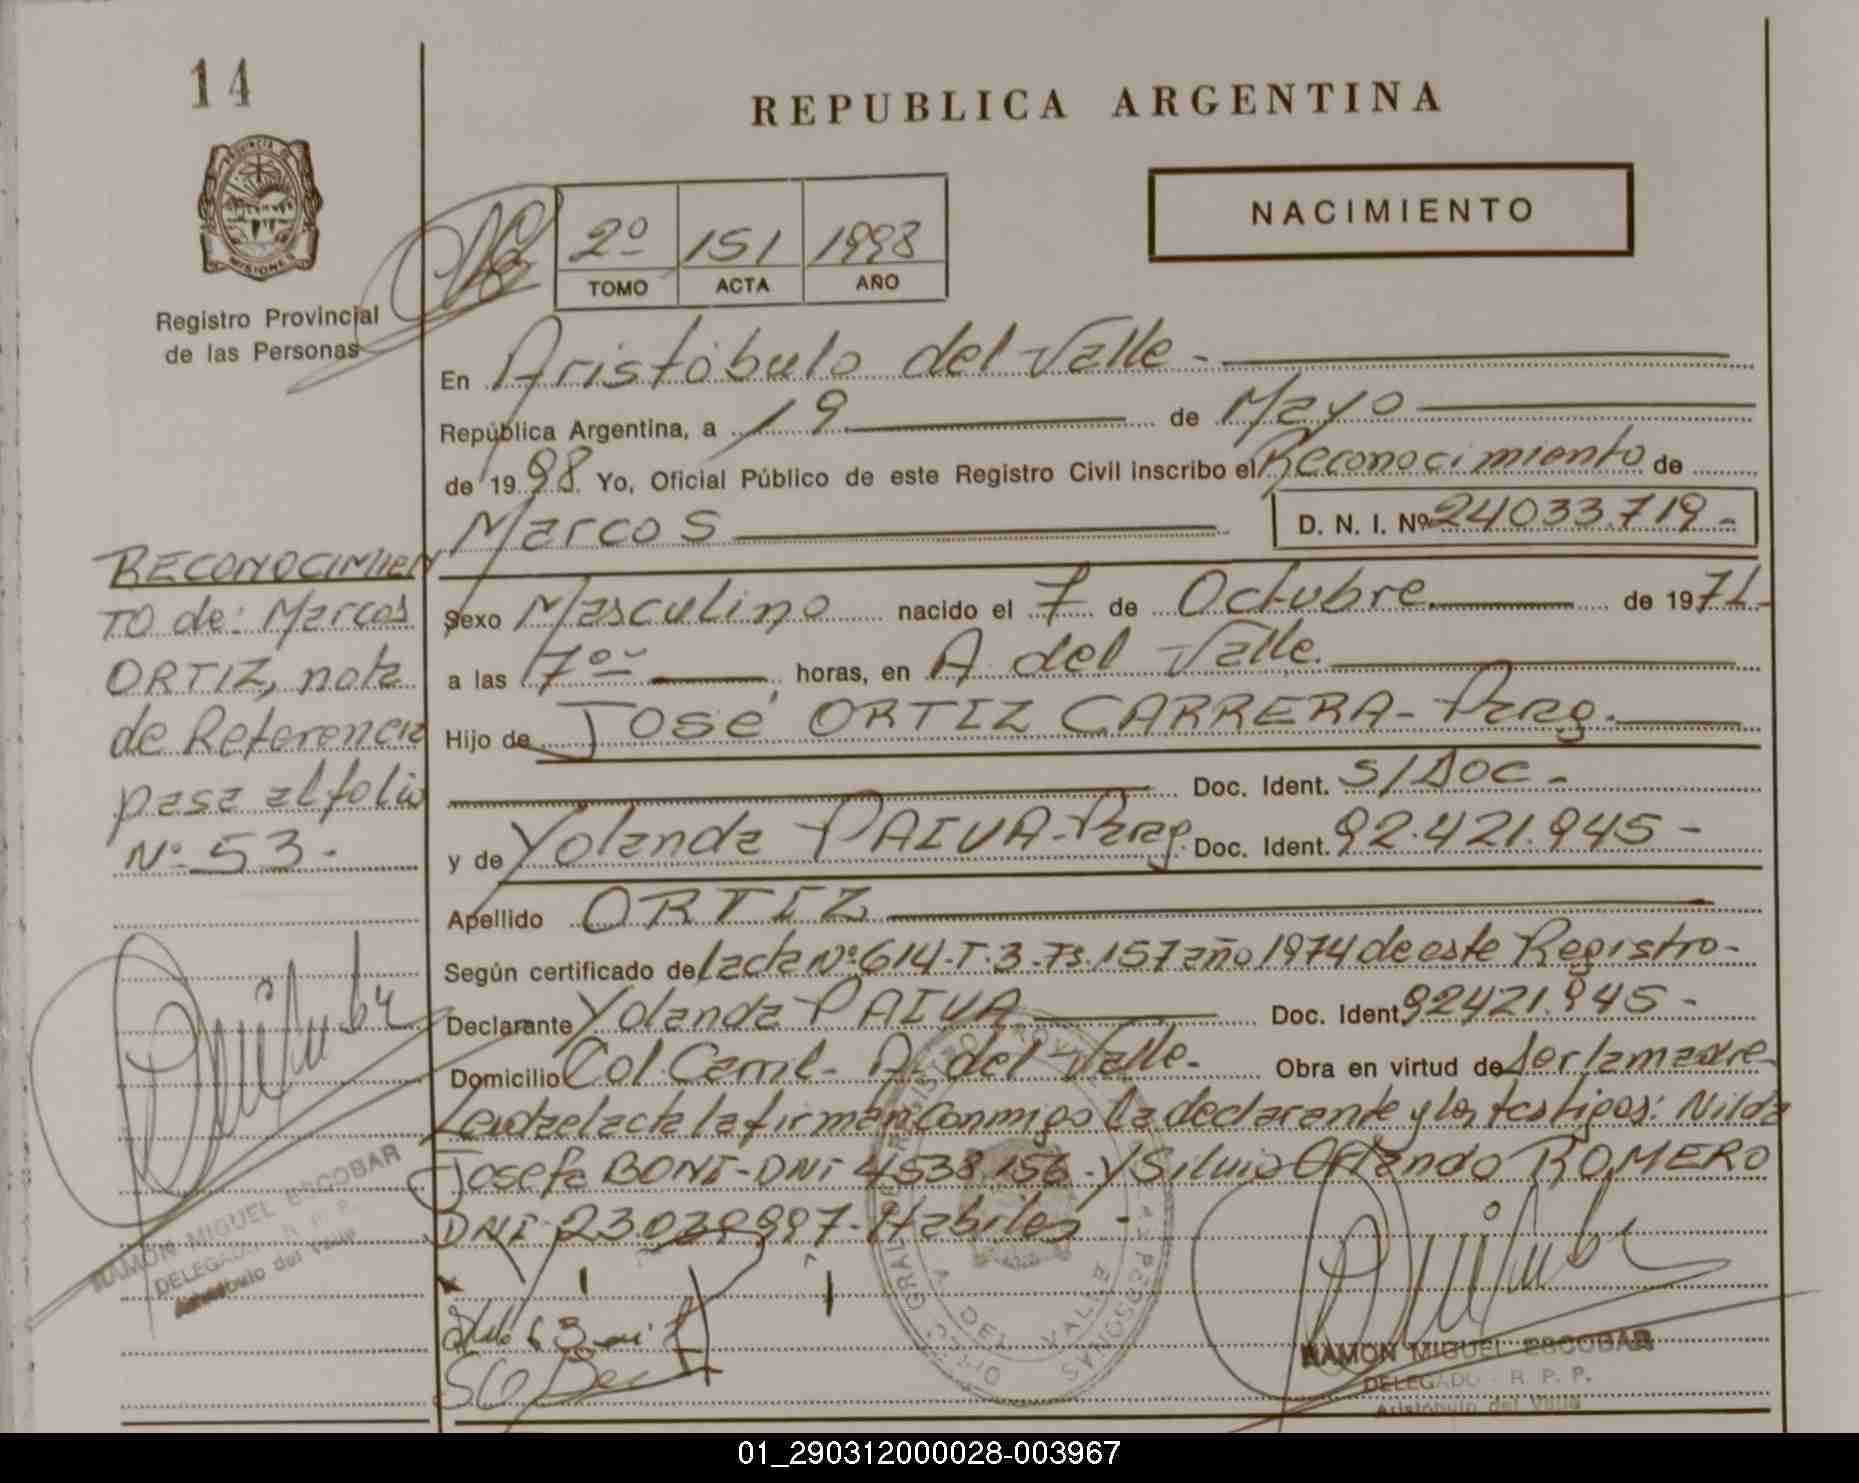 14
REPUBLICA ARGENTINA
PROVINCIA DE
MISIONES
Registro Provincial
de las Personas
2º 151 1998
TOMO ACTA AÑO
NACIMIENTO
En Aristóbulo del Valle -
República Argentina, a 19 de Mayo
de 1998. Yo, Oficial Público de este Registro Civil inscribo el Reconocimiento de
Marcos D. N. I. Nº 24033.719-
Sexo Masculino nacido el 7 de Octubre de 1971-
a las 7º horas, en A. del Valle.
Hijo de José ORTIZ CARRERA- Parag.
Doc. Ident. S/Doc -
y de Yolanda PAIVA- Parag. Doc. Ident. 92.421.945-
Apellido ORTIZ
Según certificado del acta Nº 614-T-3-Fs.157 año 1974 de este Registro-
Declarante Yolanda PAIVA Doc. Ident. 92421.945-
Domicilio Col. Caml- A. del Valle- Obra en virtud de ser la madre
Leida el acta la firman conmigo la declarante y los testigos: Nilda
Josefa BONI-DNI 4538.156- Y Silvio Orlando ROMERO
DNI-23.039997- Habiles -
RECONOCIMIEN
TO de: Marcos
ORTIZ, nota
de Referencia
pasa al folio
Nº 53-
RAMON MIGUEL ESCOBAR
DELEGADO R. P. P.
Aristóbulo del Valle
A DEL VALLE
PERSONAS
RAMON MIGUEL ESCOBAR
DELEGADO - R. P. P.
Aristóbulo del Valle
01_290312000028-003967